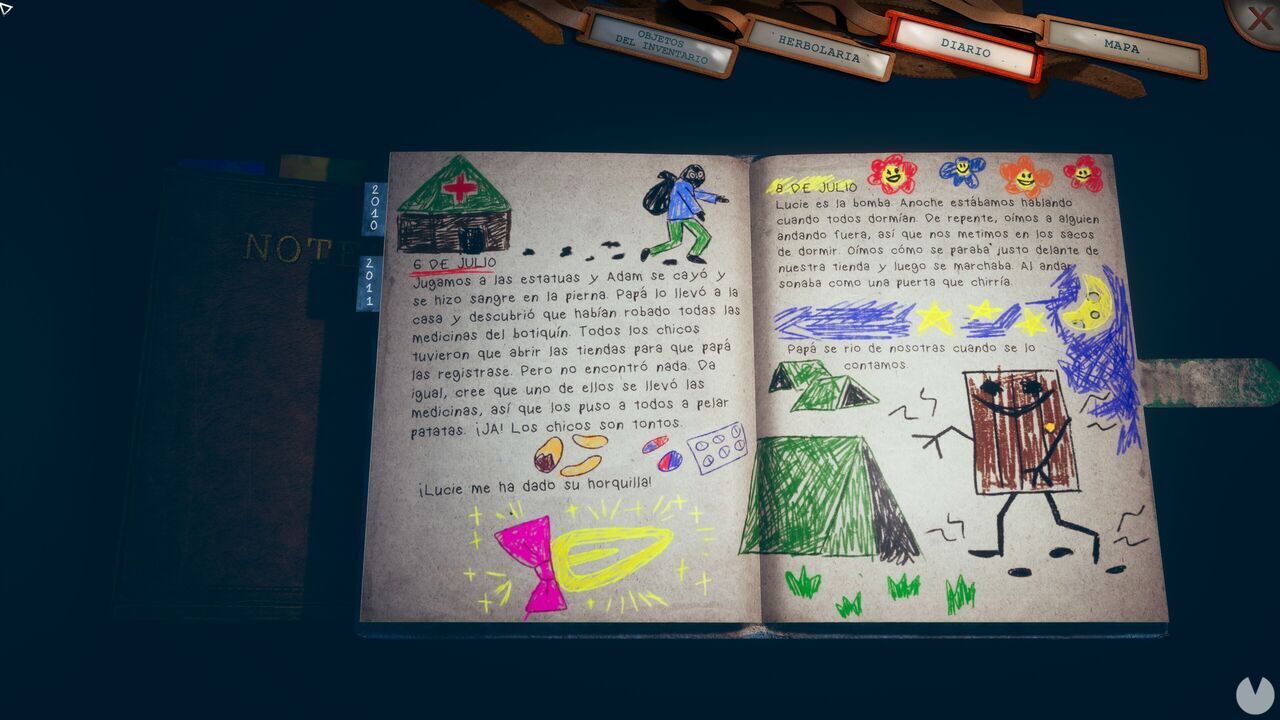 OBJETOS
DEL INVENTARIO
HERBOLARIA
DIARIO
MAPA
NOTE
2010
2011
6 DE JULIO
Jugamos a las estatuas y Adam se cayó y
se hizo sangre en la pierna. Papá lo llevó a la
casa y descubrió que habían robado todas las
medicinas del botiquín. Todos los chicos
tuvieron que abrir las tiendas para que papá
las registrase. Pero no encontró nada. Da
igual, cree que uno de ellos se llevó las
medicinas, así que los puso a todos a pelar
patatas. ¡JA! Los chicos son tontos.
¡Lucie me ha dado su horquilla!
8 DE JULIO
Lucie es la bomba. Anoche estábamos hablando
cuando todos dormían. De repente, oímos a alguien
andando fuera, así que nos metimos en los sacos
de dormir. Oímos cómo se paraba justo delante de
nuestra tienda y luego se marchaba. Al andar
sonaba como una puerta que chirría.
Papá se rio de nosotras cuando se lo
contamos.